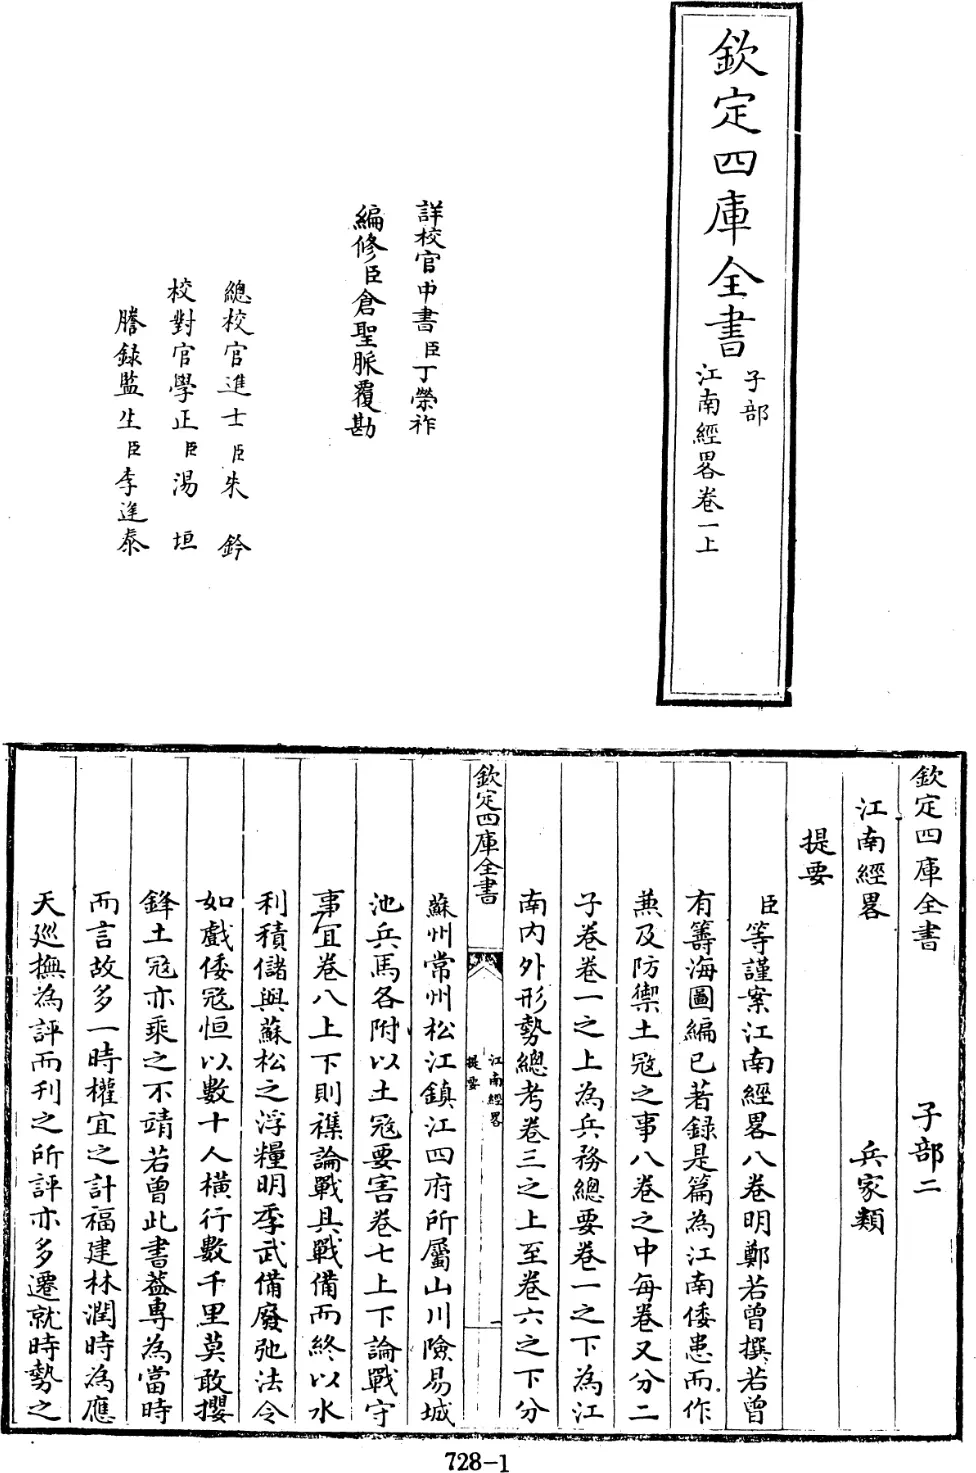 欽定四庫全書
子部
江南經畧卷一上
詳校官中書臣丁榮祚
編修臣倉聖脈覆勘
總校官進士臣朱鈐
校對官學正臣湯垣
謄録監生臣李逢泰
欽定四庫全書 子部二
江南經畧 兵家類
提要
臣等謹案江南經畧八卷明鄭若曾撰若曾
有籌海圖編已著録是篇為江南倭患而作
兼及防禦土寇之事八卷之中每卷又分二
子卷卷一之上為兵務總要卷一之下為江
南内外形勢總考卷三之上至卷六之下分
欽定四庫全書
江南經畧
提要
一
蘇州常州松江鎮江四府所屬山川險易城
池兵馬各附以土寇要害卷七上下論戰守
事宜卷八上下則襍論戰具戰備而終以水
利積儲與蘇松之浮糧明季武備廢弛法令
如戲倭寇恒以數十人横行數千里莫敢攖
鋒土寇亦乘之不靖若曾此書葢專為當時
而言故多一時權宜之計福建林潤時為應
天巡撫為評而刊之所評亦多遷就時勢之
728-1